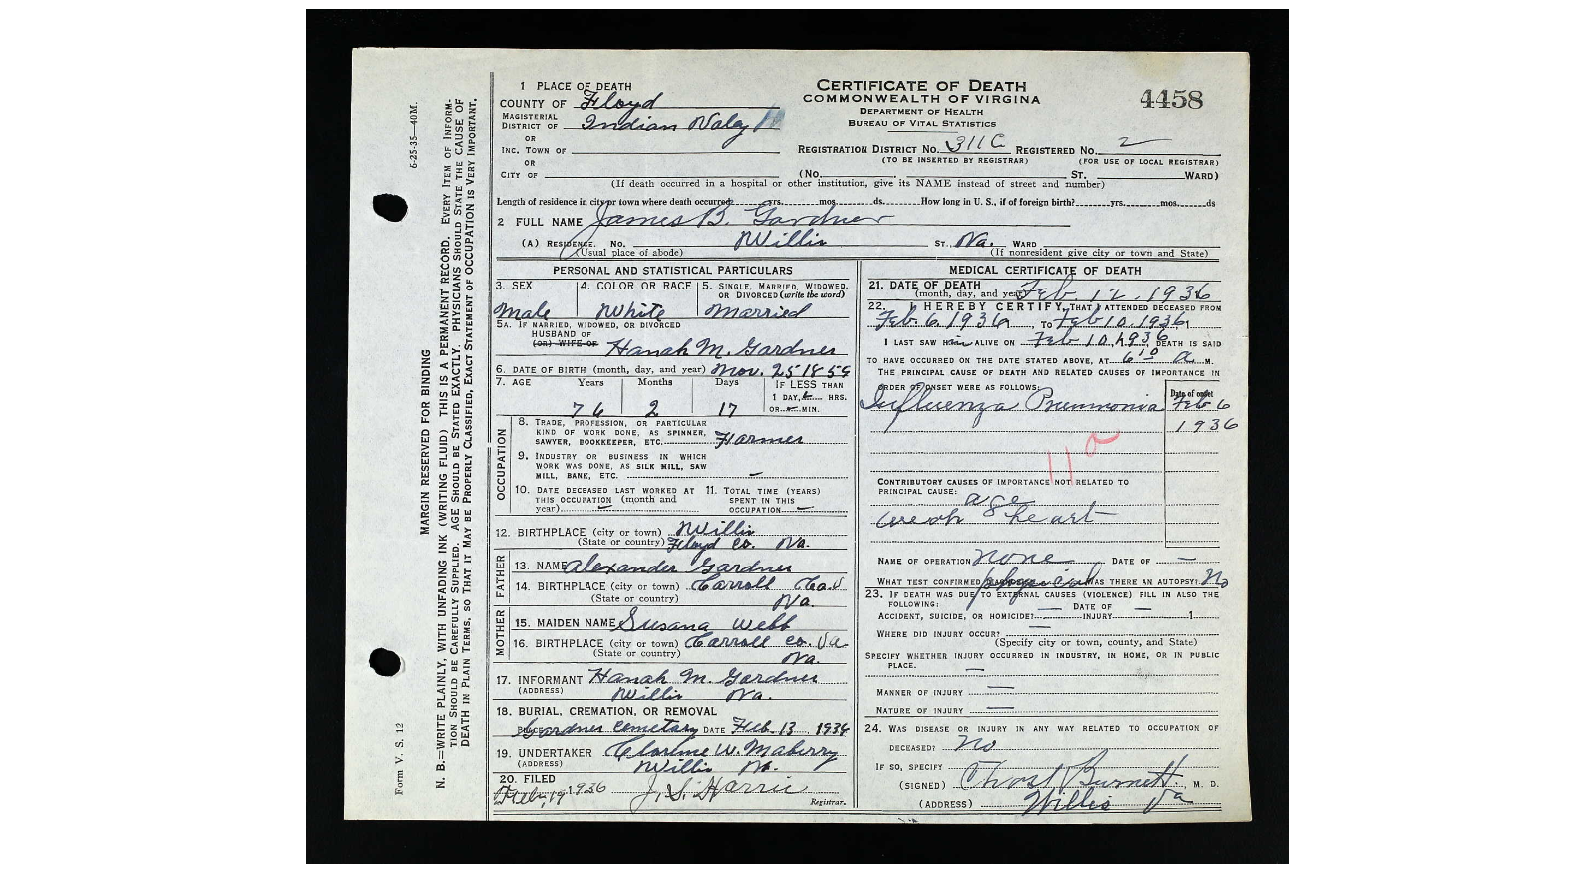 1 PLACE OF DEATH
COUNTY OF Floyd
MAGISTERIAL
DISTRICT OF Indian Valey
OR
INC. TOWN OF
OR
CITY OF
CERTIFICATE OF DEATH
COMMONWEALTH OF VIRGINIA
DEPARTMENT OF HEALTH
BUREAU OF VITAL STATISTICS
4458
REGISTRATION DISTRICT NO. 311C REGISTERED NO. 2
(TO BE INSERTED BY REGISTRAR) (FOR USE OF LOCAL REGISTRAR)
(NO. ST. WARD)
(If death occurred in a hospital or other institution, give its NAME instead of street and number)
Length of residence in city or town where death occurred yrs. mos. ds. How long in U. S., if of foreign birth? yrs. mos. ds
2 FULL NAME James B. Gardner
(A) RESIDENCE. NO. Willis ST. Va. WARD
(Usual place of abode) (If nonresident give city or town and State)
PERSONAL AND STATISTICAL PARTICULARS
3. SEX 4. COLOR OR RACE 5. SINGLE, MARRIED, WIDOWED,
OR DIVORCED (write the word)
Male White Married
5A. IF MARRIED, WIDOWED, OR DIVORCED
HUSBAND OF
(OR) WIFE OF Hanah M. Gardner
6. DATE OF BIRTH (month, day, and year) Nov. 25 1859
7. AGE Years Months Days IF LESS THAN
1 DAY, HRS.
76 2 17 OR MIN.
OCCUPATION
8. TRADE, PROFESSION, OR PARTICULAR
KIND OF WORK DONE, AS SPINNER,
SAWYER, BOOKKEEPER, ETC. Farmer
9. INDUSTRY OR BUSINESS IN WHICH
WORK WAS DONE, AS SILK MILL, SAW
MILL, BANK, ETC. —
10. DATE DECEASED LAST WORKED AT 11. TOTAL TIME (YEARS)
THIS OCCUPATION (month and SPENT IN THIS
year) — OCCUPATION —
12. BIRTHPLACE (city or town) Willis
(State or country) Floyd Co. Va.
FATHER
13. NAME Alexander Gardner
14. BIRTHPLACE (city or town) Carroll Co.
(State or country) Va.
MOTHER
15. MAIDEN NAME Susana Webb
16. BIRTHPLACE (city or town) Carroll co. Va
(State or country) Va.
17. INFORMANT Hanah M. Gardner
(ADDRESS) Willis Va.
18. BURIAL, CREMATION, OR REMOVAL
PLACE Gardner cemetary DATE Feb. 13, 1936
19. UNDERTAKER W. Maberry
(ADDRESS) Willis Va.
20. FILED
Feb, 19 1936 J. S. Harris
Registrar.
MEDICAL CERTIFICATE OF DEATH
21. DATE OF DEATH
(month, day, and year) Feb. 12, 1936
22. I HEREBY CERTIFY, THAT I ATTENDED DECEASED FROM
Feb. 6, 1936, TO Feb 10, 1936,
I LAST SAW him ALIVE ON Feb 10, 1936, DEATH IS SAID
TO HAVE OCCURRED ON THE DATE STATED ABOVE, AT 6 10 a. M.
THE PRINCIPAL CAUSE OF DEATH AND RELATED CAUSES OF IMPORTANCE IN
ORDER OF ONSET WERE AS FOLLOWS: Date of onset
Influenza Pneumonia Feb 6
1936
11a
CONTRIBUTORY CAUSES OF IMPORTANCE NOT RELATED TO
PRINCIPAL CAUSE:
age
weak & heart
NAME OF OPERATION none DATE OF —
WHAT TEST CONFIRMED DIAGNOSIS? physical WAS THERE AN AUTOPSY? No
23. IF DEATH WAS DUE TO EXTERNAL CAUSES (VIOLENCE) FILL IN ALSO THE
FOLLOWING: — DATE OF —
ACCIDENT, SUICIDE, OR HOMICIDE? INJURY 1
WHERE DID INJURY OCCUR? —
(Specify city or town, county, and State)
SPECIFY WHETHER INJURY OCCURRED IN INDUSTRY, IN HOME, OR IN PUBLIC
PLACE. —
MANNER OF INJURY —
NATURE OF INJURY —
24. WAS DISEASE OR INJURY IN ANY WAY RELATED TO OCCUPATION OF
DECEASED? No
IF SO, SPECIFY
(SIGNED) Burnett, M. D.
(ADDRESS) Willis Va
6-25-35—40M.
MARGIN RESERVED FOR BINDING
N. B.—WRITE PLAINLY, WITH UNFADING INK (WRITING FLUID) THIS IS A PERMANENT RECORD. EVERY ITEM OF INFORM-
TION SHOULD BE CAREFULLY SUPPLIED. AGE SHOULD BE STATED EXACTLY. PHYSICIANS SHOULD STATE THE CAUSE OF
DEATH IN PLAIN TERMS, SO THAT IT MAY BE PROPERLY CLASSIFIED, EXACT STATEMENT OF OCCUPATION IS VERY IMPORTANT.
Form V. S. 12